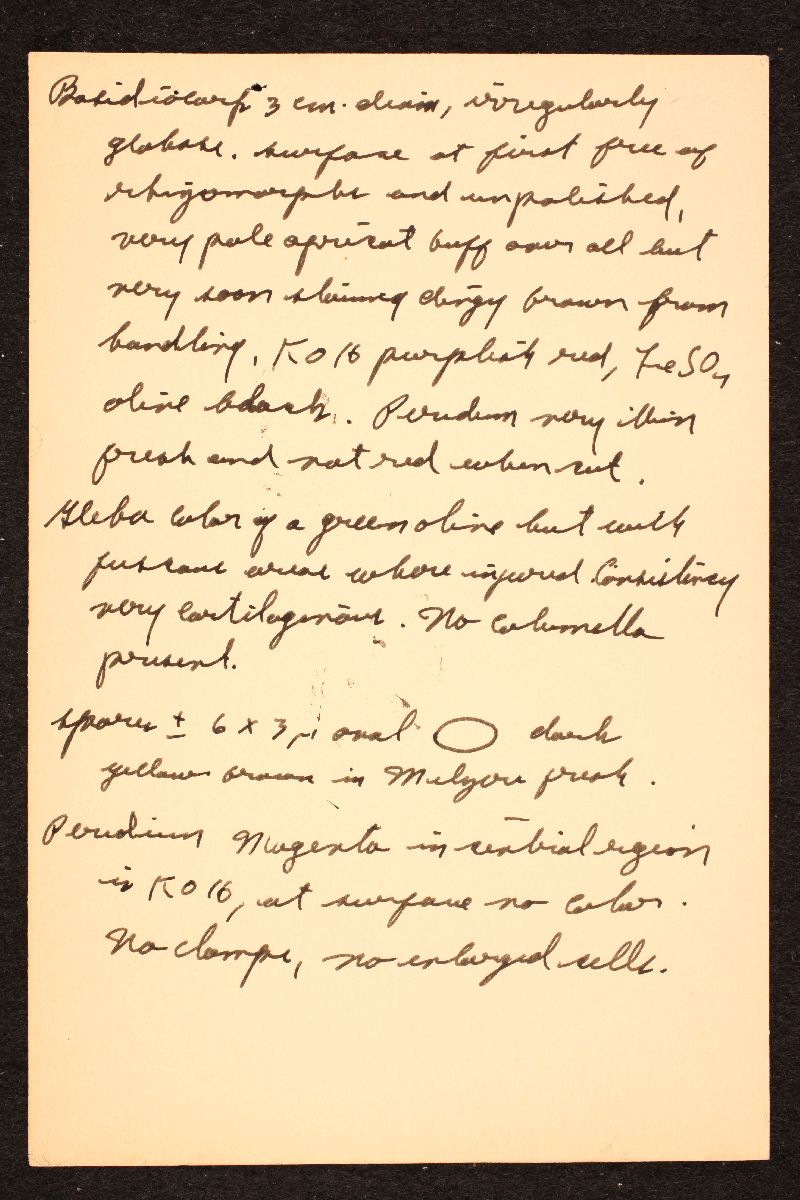 Basidiocarp 3 cm. diam, irregularly
globose. surface at first free of
rhizomorphs and unpolished,
very pale apricot buff over all but
very soon staining dingy brown from
handling, KOH purplish red, FeSO4
olive black. Peridium very thin
fresh and not red when cut.
Gleba color of a green olive but with
fuscous areas where injured. Consistency
very cartilaginous. No columella
present.
spores ± 6 x 3 µ oval dark
yellow brown in Melzers fresh.
Peridium Magenta in central region
in KOH, at surface no color.
No clamps, no enlarged cells.